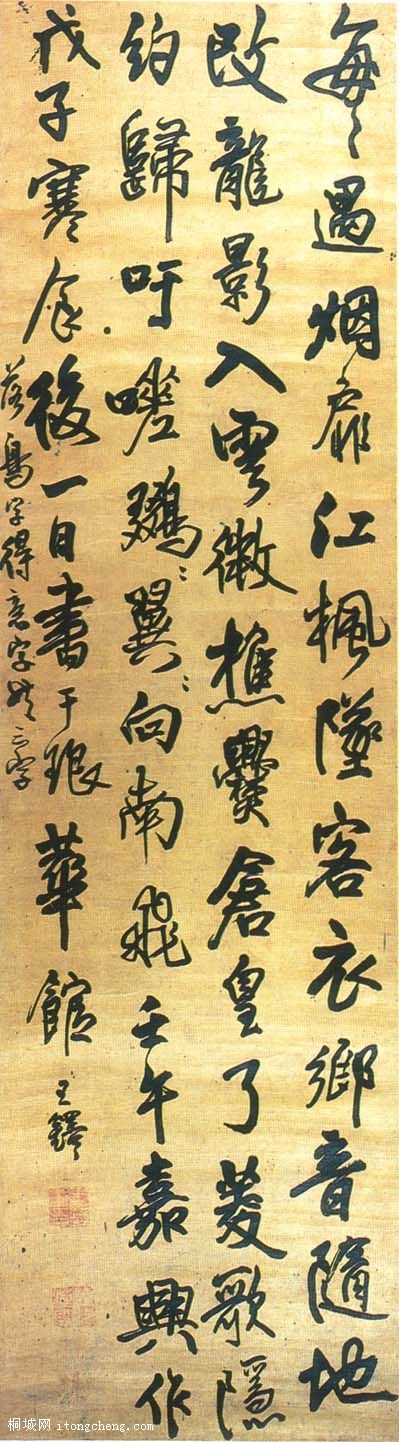 每々遇烟扉江楓墜客衣鄉音隨地
改龍影入雲微樵爨倉皇了菱歌隱
約歸吁嗟翼向南飛壬午嘉興作
戊子寒食後一日書于琅華館王鐸
落鳥字得意字
桐城网 itongcheng.com